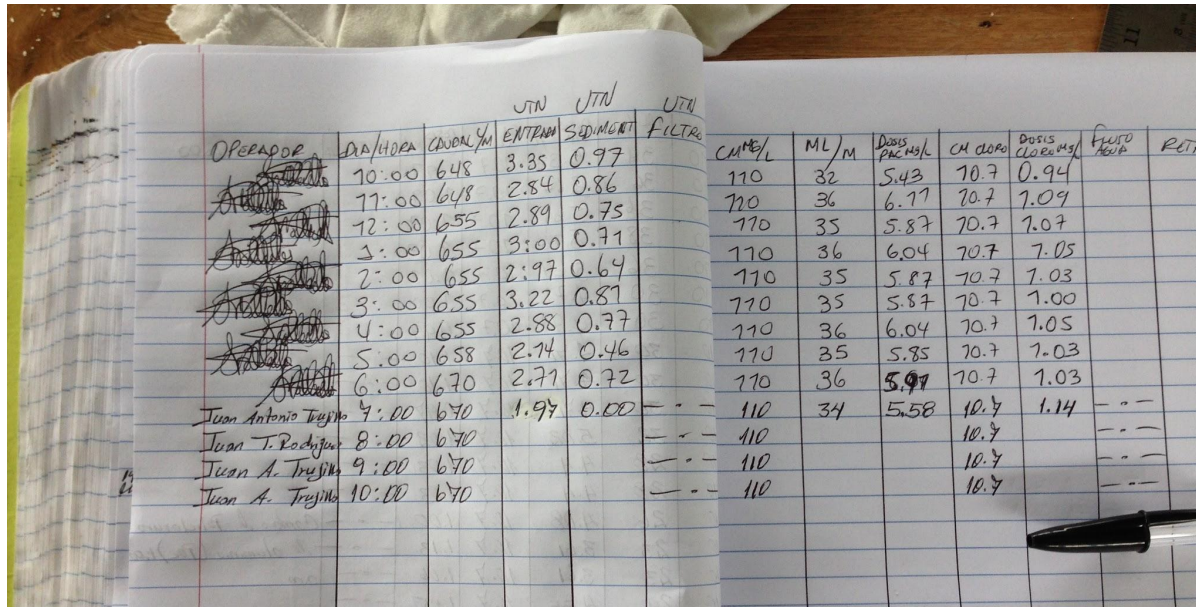 UTN UTN UTN
OPERADOR DIA/HORA CAUDAL L/M ENTRADA SEDIMENT FILTRO CM MG/L ML/M DOSIS PAC MG/L CM CLORO DOSIS CLORO MG/L FLUJO AGUA RET
10:00 648 3.35 0.97 110 32 5.43 10.7 0.94
11:00 648 2.84 0.86 110 36 6.11 10.7 1.09
12:00 655 2.89 0.75 110 35 5.87 10.7 1.07
1:00 655 3:00 0.71 110 36 6.04 10.7 1.05
2:00 655 2:97 0.64 110 35 5.87 10.7 1.03
3:00 655 3.22 0.81 110 35 5.87 10.7 1.00
4:00 655 2.88 0.77 110 36 6.04 10.7 1.05
5:00 658 2.14 0.46 110 35 5.85 10.7 1.03
6:00 670 2.71 0.72 110 36 10.7 1.03
Juan Antonio Trujillo 7:00 670 1.97 0.00 - - - 110 34 5.58 10.7 1.14 - - -
Juan T. Rodriguez 8:00 670 - - - 110 10.7 - - -
Juan A. Trujillo 9:00 670 - - - 110 10.7 - - -
Juan A. Trujillo 10:00 670 - - - 110 10.7 - - -
11